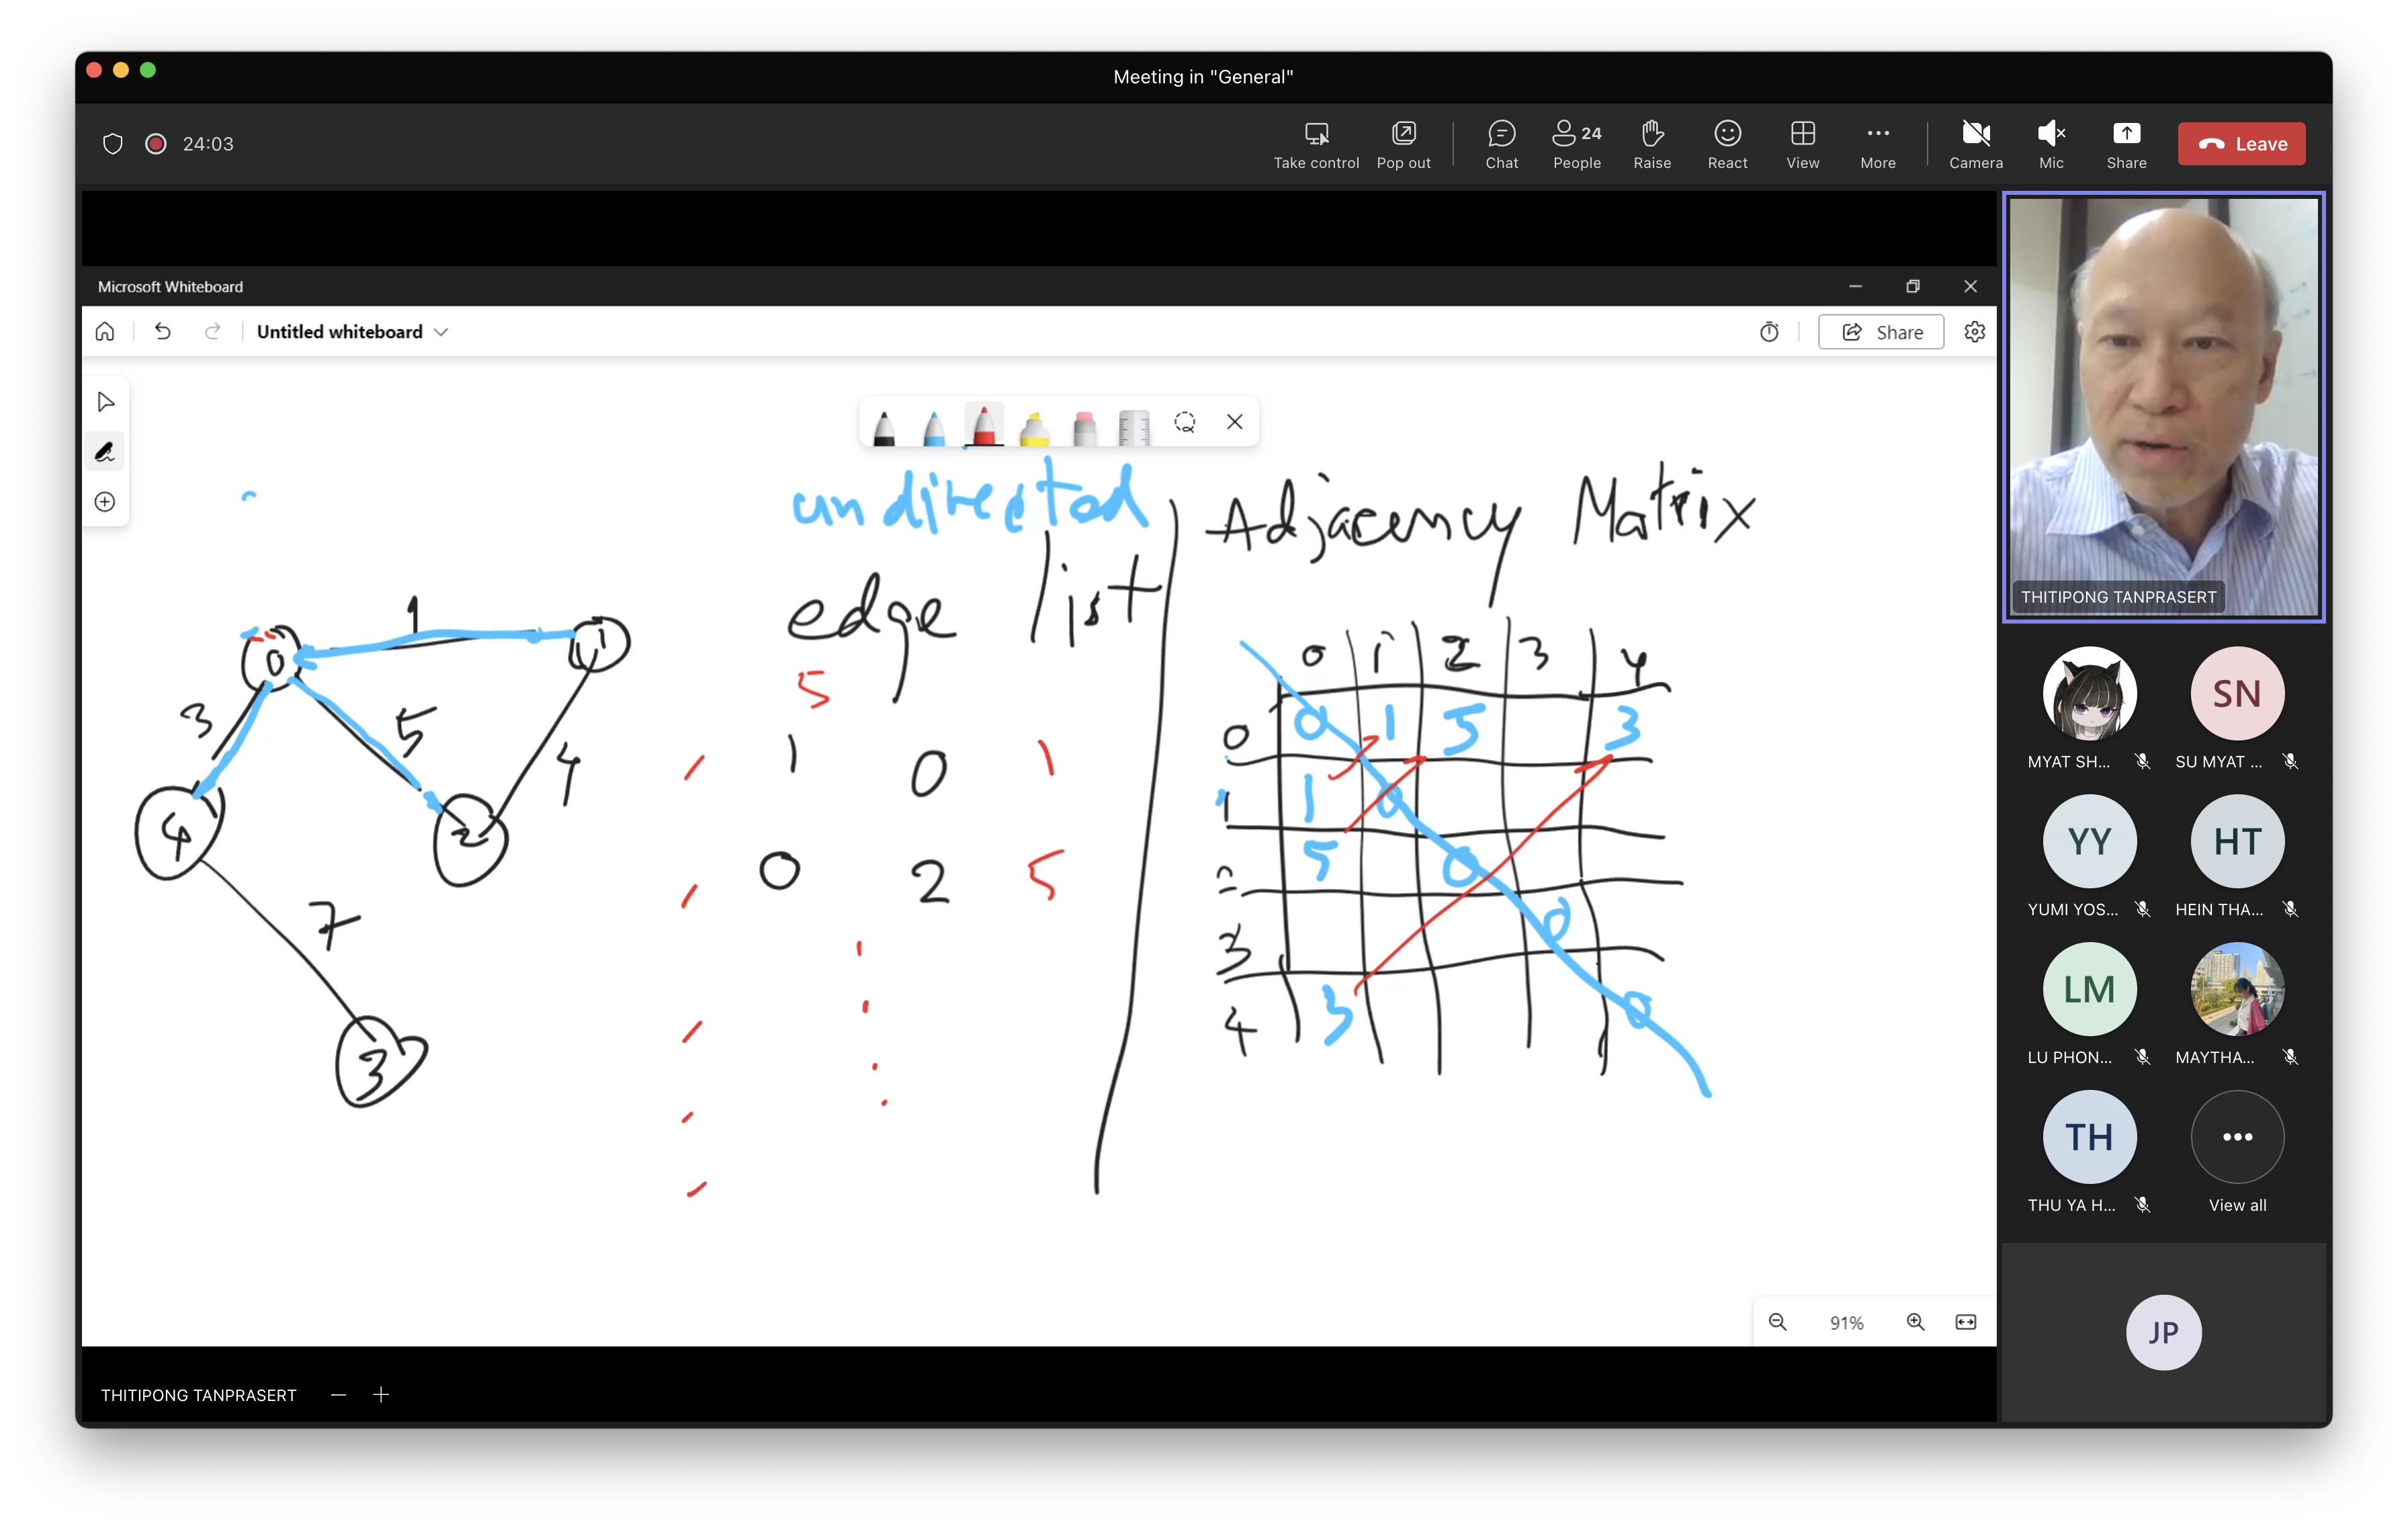 Meeting in "General"
24:03
Take control
Pop out
Chat
24
People
Raise
React
View
More
Camera
Mic
Share
Leave
Microsoft Whiteboard
Untitled whiteboard
Share
undirected
edge list
5
1 0 1
0 2 5
Adjacency Matrix
0 1 2 3 4
0 0 1 5 3
1 1 0
2 5 0
3 0
4 3 0
0
1
1
3
5
4
4
2
7
3
91%
THITIPONG TANPRASERT
THITIPONG TANPRASERT
MYAT SH...
SN
SU MYAT ...
YY
YUMI YOS...
HT
HEIN THA...
LM
LU PHON...
MAYTHA...
TH
THU YA H...
View all
JP